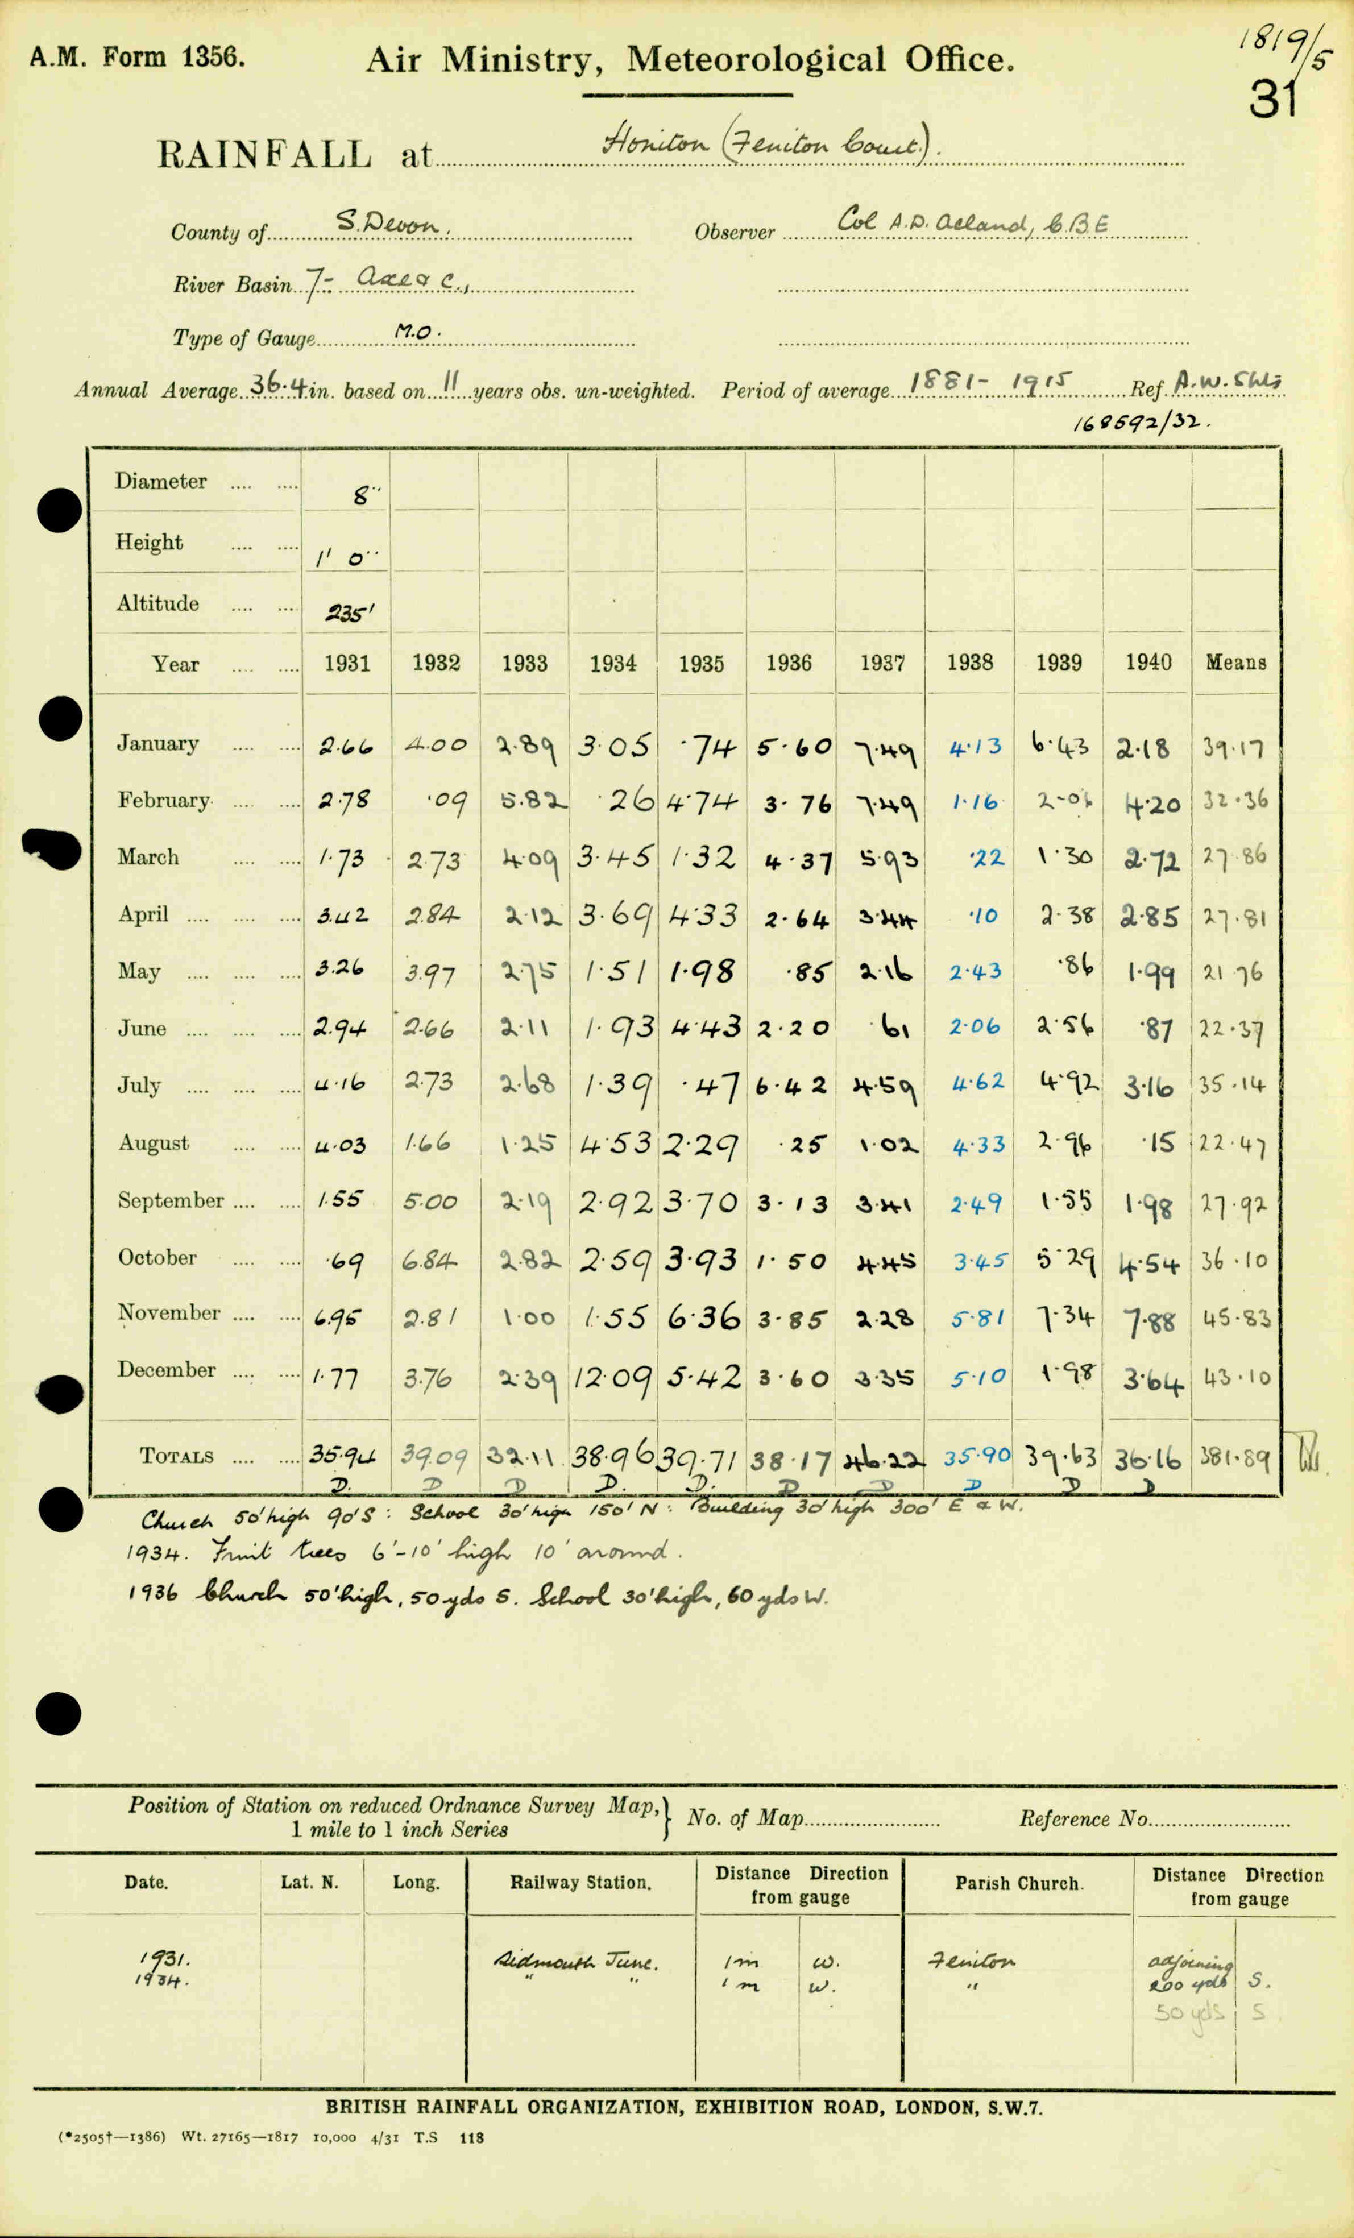 1819/5
A.M. Form 1356. Air Ministry, Meteorological Office.
31
RAINFALL at Honiton (Feniton Court).
County of S. Devon. Observer Col A.D. Acland, C.B.E
River Basin 7- Axe & c.,
Type of Gauge M.O.
Annual Average 36.4 in. based on 11 years obs. un-weighted. Period of average 1881- 1915 Ref. A.W. Shts
168592/32.
Diameter .... .... 8"
Height .... .... 1' 0"
Altitude .... .... 235'
Year .... .... 1931 1932 1933 1934 1935 1936 1937 1938 1939 1940 Means
January .... .... 2.66 4.00 2.89 3.05 .74 5.60 7.49 4.13 6.43 2.18 39.17
February .... .... 2.78 .09 5.82 .26 4.74 3.76 7.49 1.16 2.06 4.20 32.36
March .... .... 1.73 2.73 4.09 3.45 1.32 4.37 5.93 .22 1.30 2.72 27.86
April .... .... .... 3.42 2.84 2.12 3.69 4.33 2.64 3.44 .10 2.38 2.85 27.81
May .... .... .... 3.26 3.97 2.75 1.51 1.98 .85 2.16 2.43 .86 1.99 21.76
June .... .... .... 2.94 2.66 2.11 1.93 4.43 2.20 .61 2.06 2.56 .87 22.37
July .... .... .... 4.16 2.73 2.68 1.39 .47 6.42 4.59 4.62 4.92 3.16 35.14
August .... .... 4.03 1.66 1.25 4.53 2.29 .25 1.02 4.33 2.96 .15 22.47
September .... .... 1.55 5.00 2.19 2.92 3.70 3.13 3.41 2.49 1.55 1.98 27.92
October .... .... .69 6.84 2.82 2.59 3.93 1.50 4.45 3.45 5.29 4.54 36.10
November .... .... 6.95 2.81 1.00 1.55 6.36 3.85 2.28 5.81 7.34 7.88 45.83
December .... .... 1.77 3.76 2.39 12.09 5.42 3.60 3.35 5.10 1.98 3.64 43.10
TOTALS .... .... 35.94 39.09 32.11 38.96 39.71 38.17 46.22 35.90 39.63 36.16 381.89
D. D D D. D. D D D D D
Church 50' high 90' S : School 30' high 150' N : Building 30' high 300' E & W.
1934. Fruit trees 6'-10' high 10' around.
1936 Church 50' high, 50 yds S. School 30' high, 60 yds W.
Position of Station on reduced Ordnance Survey Map,} No. of Map Reference No.
1 mile to 1 inch Series
Date. Lat. N. Long. Railway Station. Distance Direction from gauge Parish Church. Distance Direction from gauge
1931. Sidmouth Junc. 1 m W. Feniton adjoining
1934. " " 1 m W. " 200 yds S.
50 yds S
BRITISH RAINFALL ORGANIZATION, EXHIBITION ROAD, LONDON, S.W.7.
(*2505†—1386) Wt. 27165—1817 10,000 4/31 T.S 118